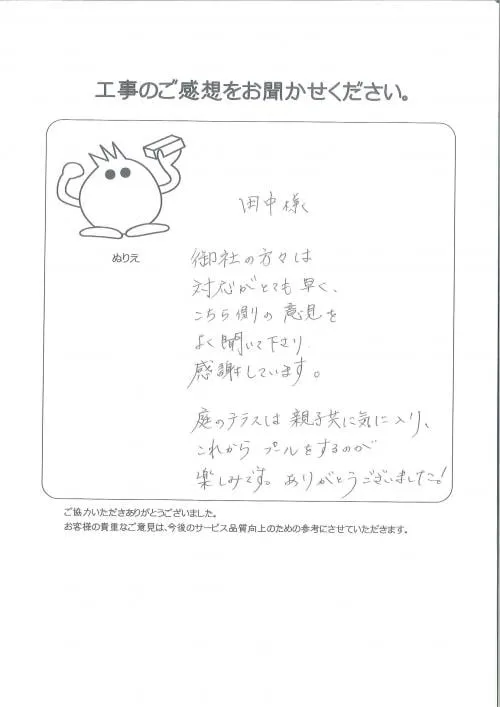 工事のご感想をお聞かせください。
ぬりえ
田中様
御社の方々は
対応がとても早く、
こちら側の意見を
よく聞いて下さり
感謝しています。
庭のテラスは親子共に気に入り、
これからプールをするのが
楽しみです。ありがとうございました!
ご協力いただきありがとうございました。
お客様の貴重なご意見は、今後のサービス品質向上のための参考にさせていただきます。